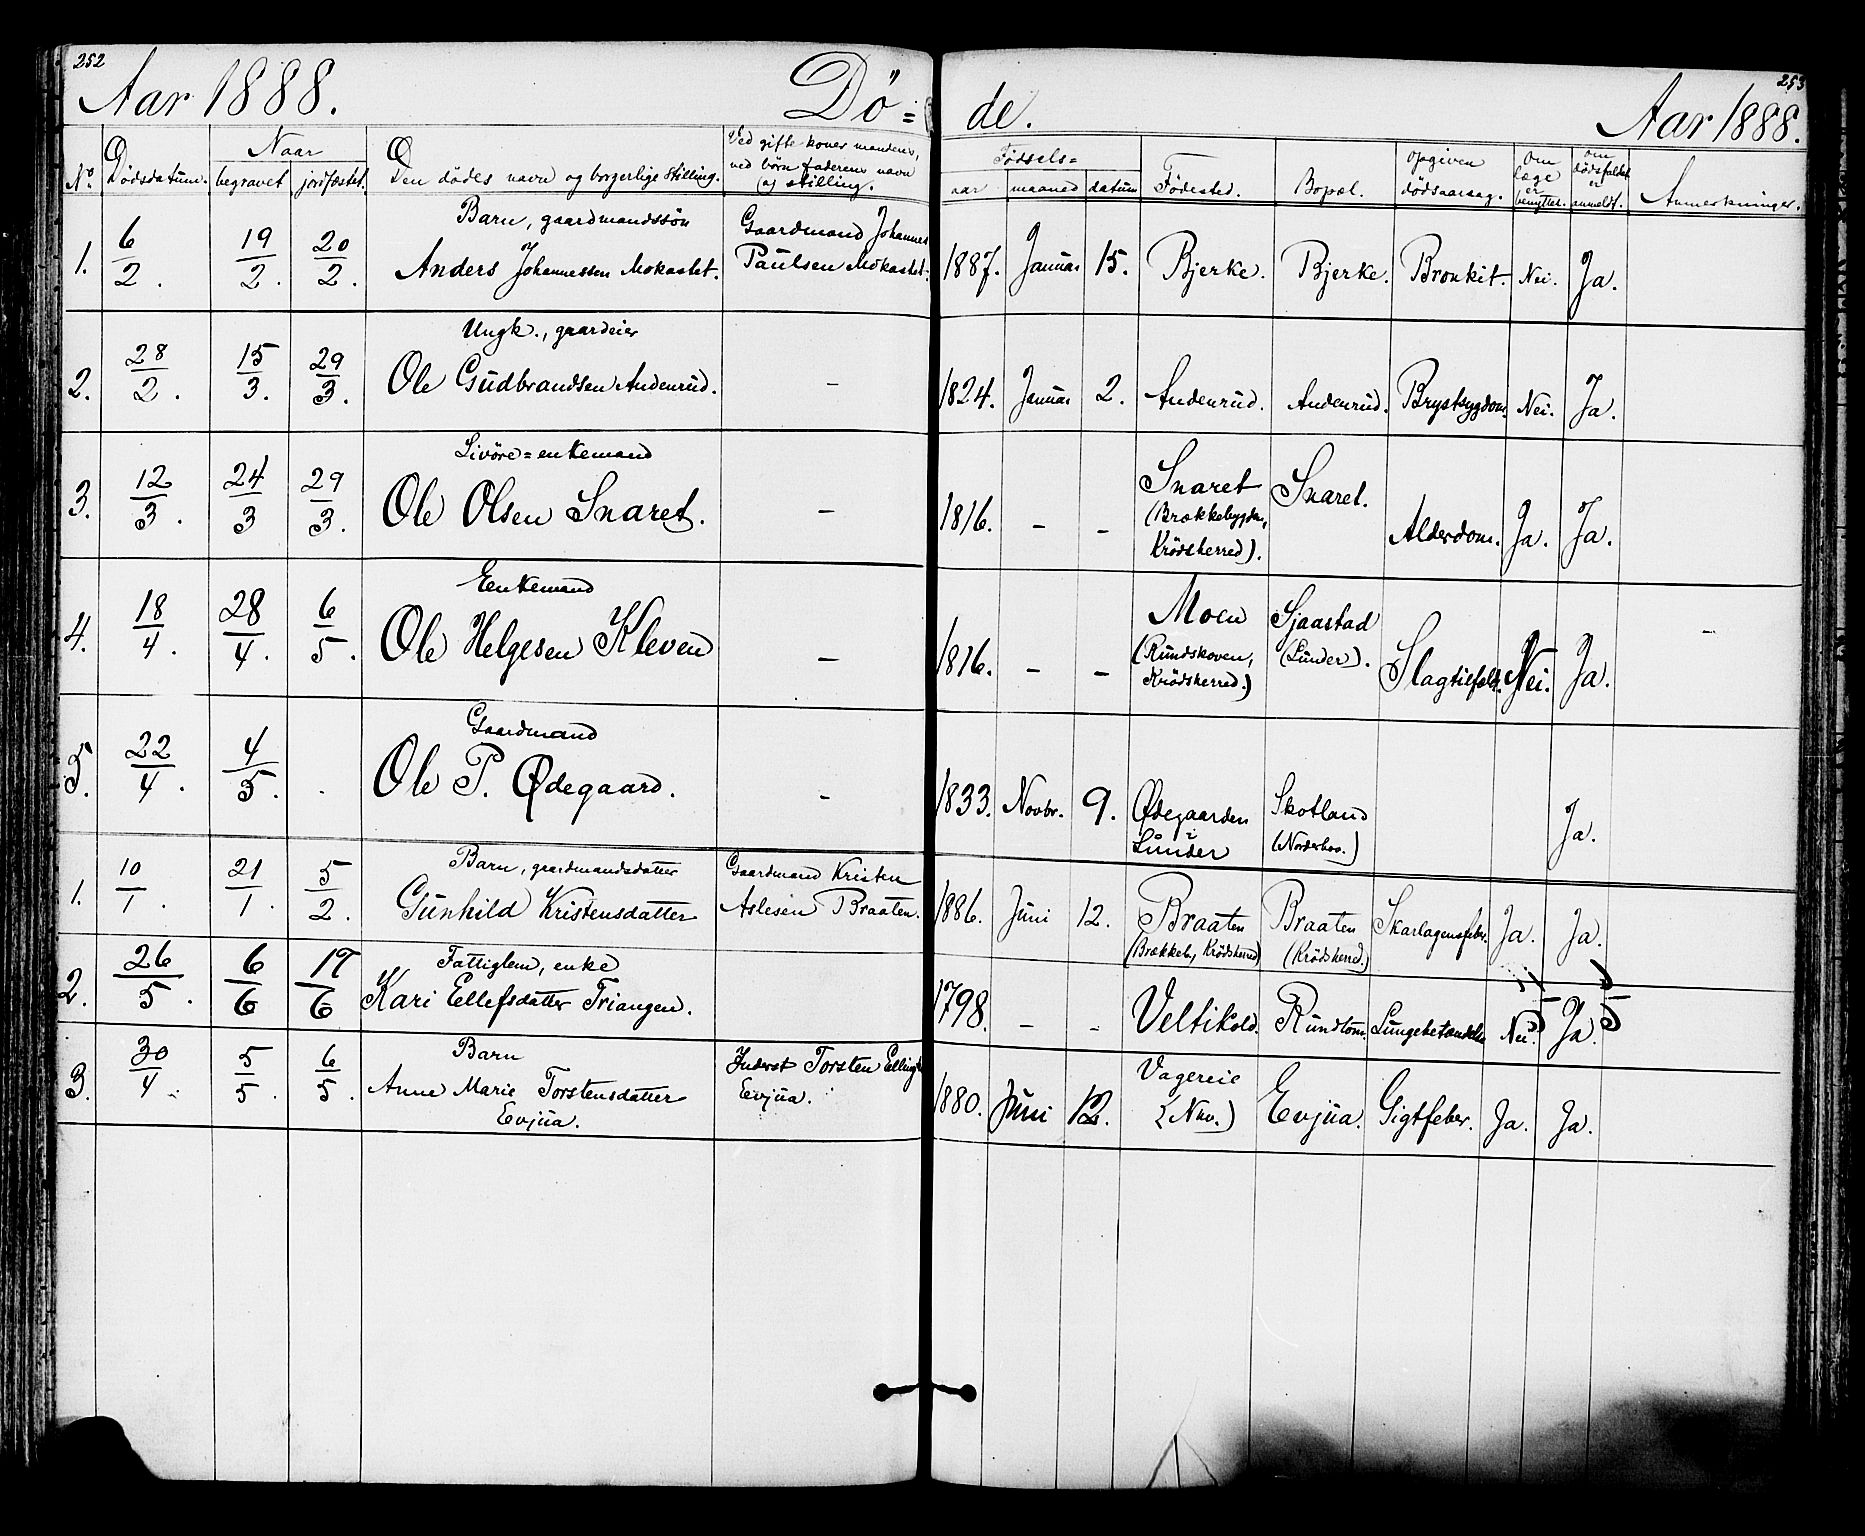 252
Aar 1888.
Dö=
de.
253
Aar 1888.
No.
Dödsdatum.
Naar
begravet
jordfæstet.
Den dödes navn og borgerlige stilling.
Ved gifte koner mandens,
ved börn faderens navn
og stilling.
Födsels=
aar
maaned
datum
Födested.
Bopæl.
Opgiven
dödsaarsag.
Om
læge
er
benyttet.
Om
dödsfaldet
er
anmeldt.
Anmerkninger.
1.
6/2.
19/2.
20/2.
Barn, gaardmandssön
Anders Johannessen Mokastet.
Gaardmand Johannes
Paulsen Mokastet.
1887.
Januar
15.
Bjerke.
Bjerke.
Bronkit.
Nei.
Ja.
2.
28/2.
15/3.
29/3.
Ungk., gaardeier
Ole Gudbrandsen Andenrud.
–
1824.
Januar
2.
Andenrud.
Andenrud.
Brystsygdom.
Nei.
Ja.
3.
12/3.
24/3
29/3.
Livöre=enkemand
Ole Olsen Snaret.
–
1816.
–
–
Snaret
(Brækkebygden,
Krödsherred).
Snaret.
Alderdom.
Ja.
Ja.
4.
18/4.
28/4.
6/5.
Eenkemand
Ole Helgesen Kleven
–
1816.
–
–
Moen
(Rundskoven,
Krödsherred.)
Sjaastad
(Lunder).
Slagtilfæld.
Nei.
Ja.
–
5.
22/4.
4/5.
.
Gaardmand
Ole P. Ødegaard.
–
1833.
Novbr.
9.
Ødegaarden
i
Lunder
Skotland
(Norderhov.)
Ja.
1.
10/1.
21/1.
5/2.
Barn, gaardmandsdatter
Gunhild Kristensdatter
Gaardmand Kristen
Aslesen Braaten.
1886.
Juni
12.
Braaten
(Brækkeb., Krödsherred)
Braaten
(Krödsherred.)
Skarlagensfeber.
Ja.
Ja.
2.
26/5.
6/6
17/6
Fattiglem, enke
Kari Ellefsdatter Triangen.
1798.
–
–
Veltikold.
Rundtom.
Lungebetændelse
Nei.
Ja.
3.
30/4.
5/5.
6/5.
Barn
Anne Marie Torstensdatter
Evjua.
Inderst Torsten
Evjua.
1880.
Juni
12.
(Nov.)
Evjua.
Gigtfeber.
Ja.
Ja.